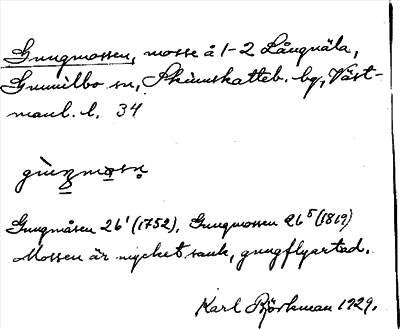 Gungmossen, mosse å 1-2 Långnäla,
Gunnilbo sn, Skinnskatteb. bg, Väst-
manl. l. 34
gùngmosn
Gungmåsen 26' (1752), Gungmossen 26⁵ (1819)
Mossen är mycket sank, gungflyartad.
Karl Björkman 1929.